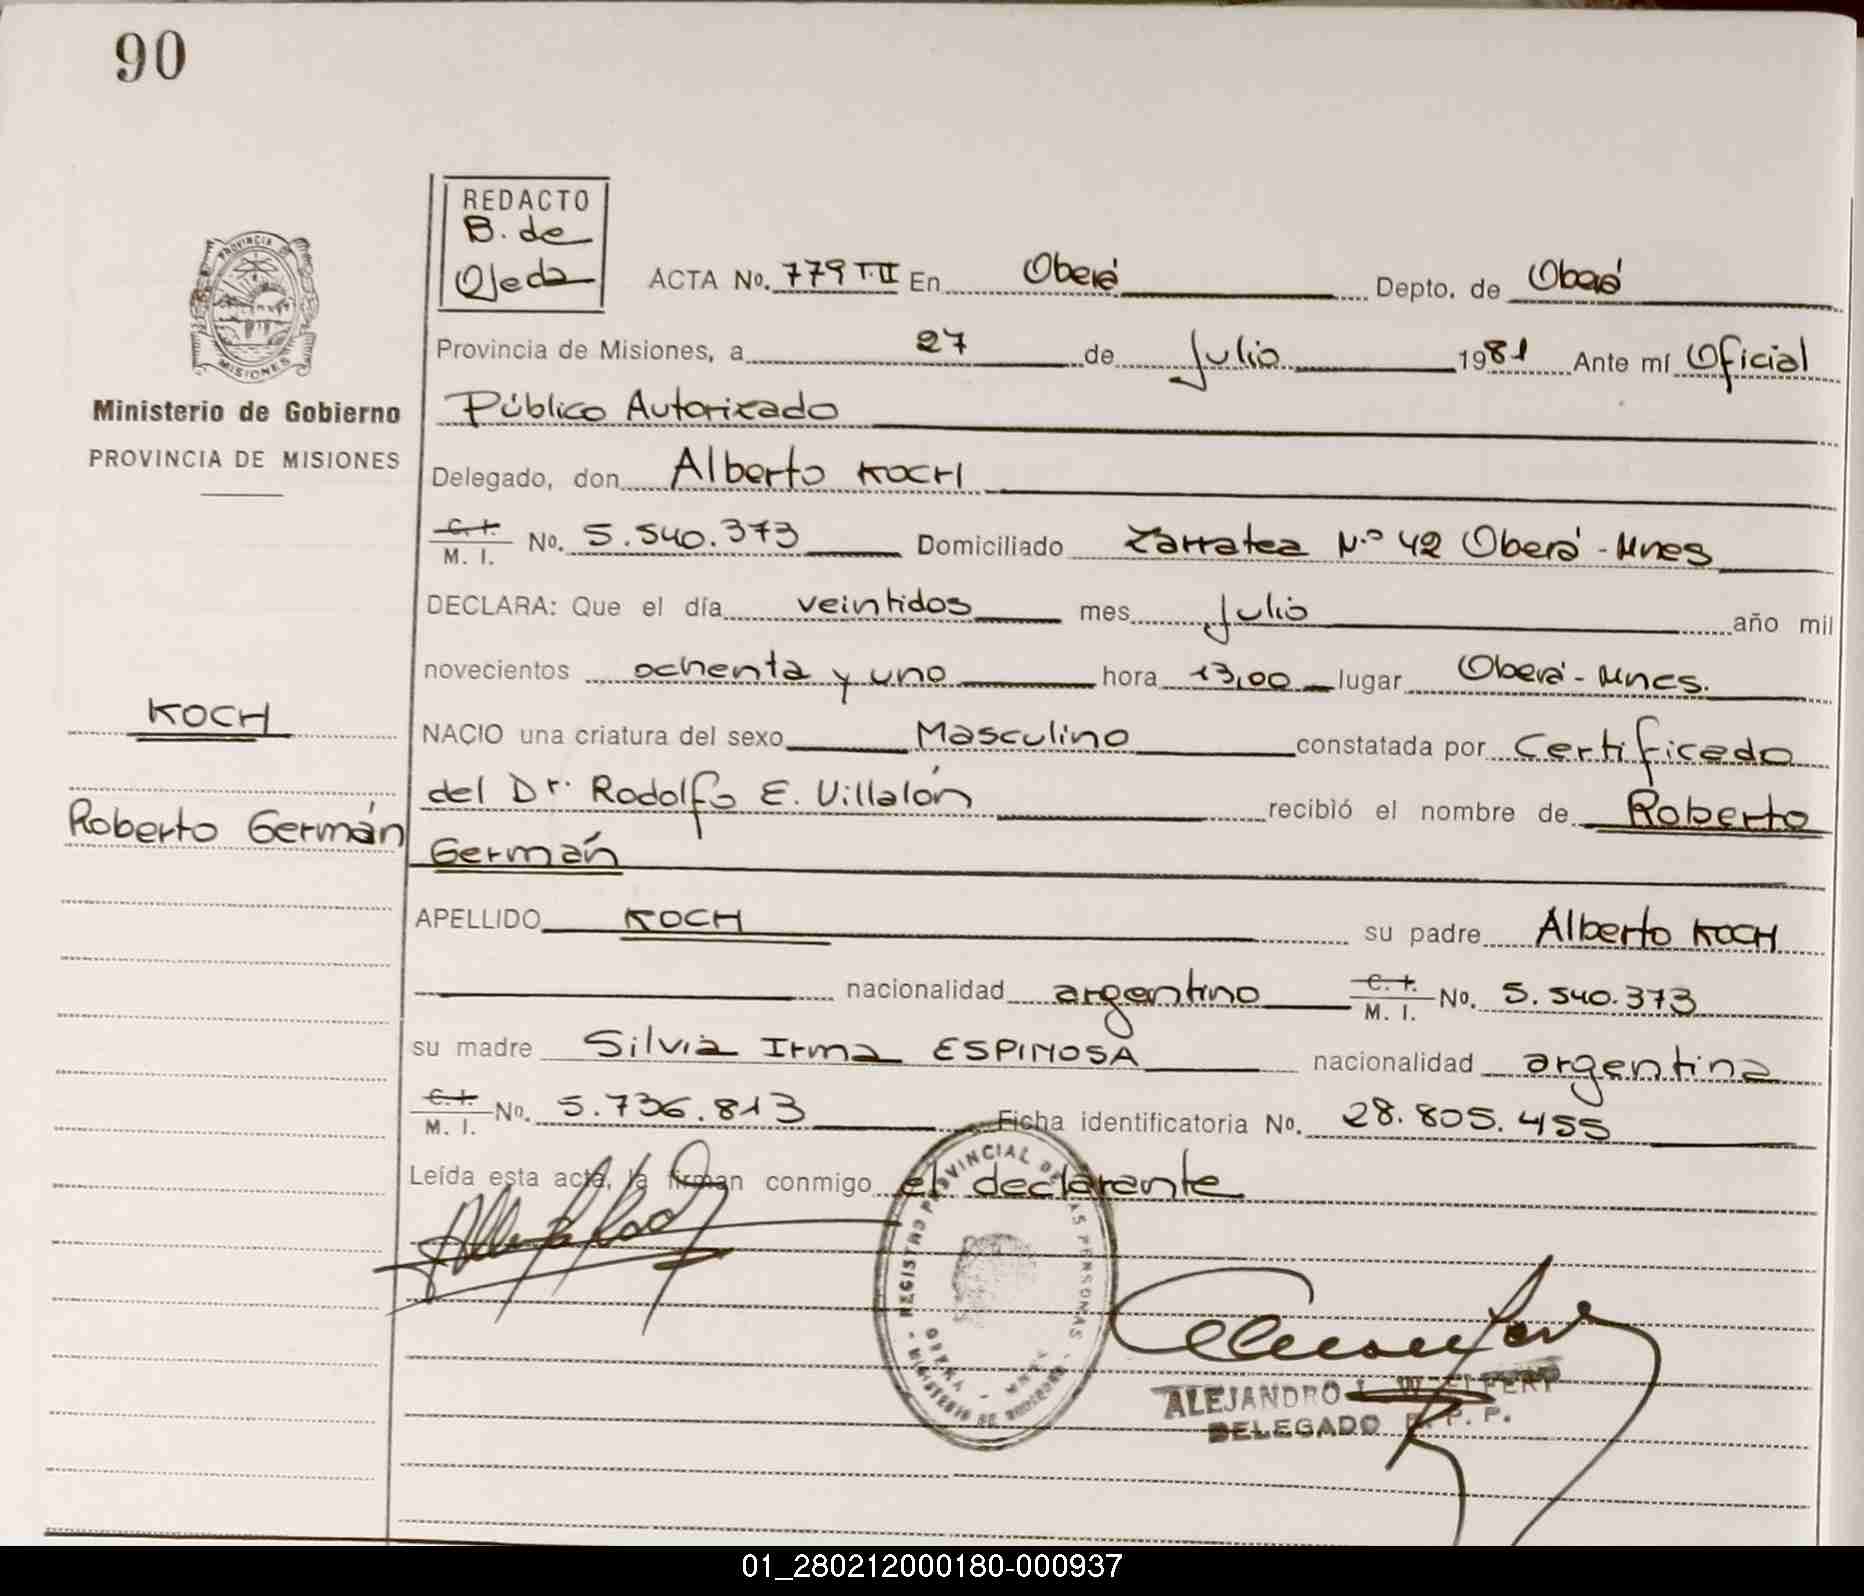 90
REDACTO
B. de
Ojeda
ACTA No. 779 T.II En Oberá Depto. de Oberá
Provincia de Misiones, a 27 de Julio 1981 Ante mí Oficial
Público Autorizado
Delegado, don Alberto KOCH
C. I. M. I. No. 5.540.373 Domiciliado Zarratea N.º 42 Oberá - Mnes
DECLARA: Que el día veintidos mes Julio año mil
novecientos ochenta y uno hora 13,00 lugar Oberá - Mnes.
NACIO una criatura del sexo Masculino constatada por Certificado
del Dr. Rodolfo E. Villalón recibió el nombre de Roberto
Germán
APELLIDO KOCH su padre Alberto KOCH
nacionalidad argentino C. I. M. I. No. 5.540.373
su madre Silvia Irma ESPINOSA nacionalidad argentina
C. I. M. I. No. 5.736.813 Ficha identificatoria No. 28.805.455
Leída esta acta, la firman conmigo el declarante
PROVINCIA DE
MISIONES
Ministerio de Gobierno
PROVINCIA DE MISIONES
KOCH
Roberto Germán
REGISTRO PROVINCIAL DE LAS PERSONAS
OBERA - MNES
MINISTERIO DE GOBIERNO
ALEJANDRO
DELEGADO R. P. P.
01_280212000180-000937